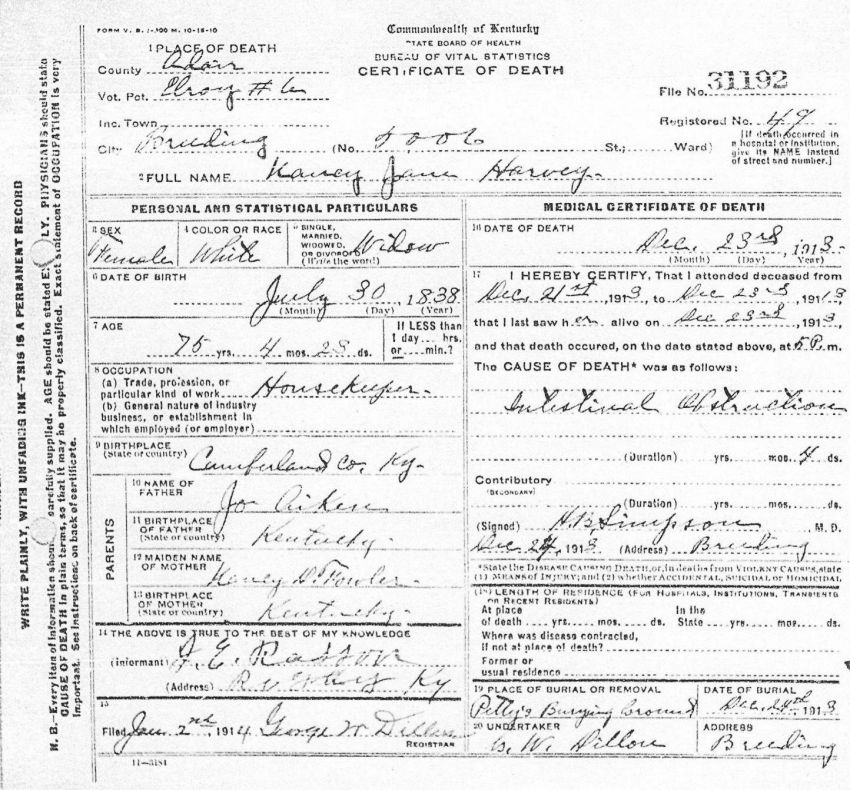 FORM V. S. 1-300 M. 10-18-10
Commonwealth of Kentucky
STATE BOARD OF HEALTH
BUREAU OF VITAL STATISTICS
CERTIFICATE OF DEATH
1 PLACE OF DEATH
County Adair
Vot. Pct. Elroy # 6
Inc. Town
City Breeding (No. 5006 St.; Ward)
File No. 31192
Registered No. 49
[If death occurred in
a hospital or institution,
give its NAME instead
of street and number.]
2 FULL NAME Nancy Jane Harvey
PERSONAL AND STATISTICAL PARTICULARS
3 SEX
Female
4 COLOR OR RACE
White
5 SINGLE,
MARRIED,
WIDOWED,
OR DIVORCED
(Write the word)
Widow
6 DATE OF BIRTH
July 30, 1838
(Month) (Day) (Year)
7 AGE
75 yrs. 4 mos. 23 ds.
If LESS than
1 day.... hrs.
or....min.?
8 OCCUPATION
(a) Trade, profession, or
particular kind of work Housekeeper
(b) General nature of industry
business, or establishment in
which employed (or employer)
9 BIRTHPLACE
(State or country)
Cumberland Co. Ky.
PARENTS
10 NAME OF
FATHER
Jo Aiken
11 BIRTHPLACE
OF FATHER
(State or country)
Kentucky
12 MAIDEN NAME
OF MOTHER
Nancy D. Fowler
13 BIRTHPLACE
OF MOTHER
(State or country)
Kentucky
14 THE ABOVE IS TRUE TO THE BEST OF MY KNOWLEDGE
(Informant) J. E.
(Address) Ky
15
Filed Jan. 2nd 1914 George W. Dillon
REGISTRAR
11-3184
MEDICAL CERTIFICATE OF DEATH
16 DATE OF DEATH
Dec. 23rd, 1913
(Month) (Day) Year)
17 I HEREBY CERTIFY, That I attended deceased from
Dec. 21st, 1913, to Dec 23rd, 1913,
that I last saw her alive on Dec 23rd, 1913,
and that death occured, on the date stated above, at 5 P. m.
The CAUSE OF DEATH* was as follows:
Intestinal Obstruction
(Duration) yrs. mos. 4 ds.
Contributory
(SECONDARY)
(Duration) yrs. mos. ds.
(Signed) H B Simpson M. D.
Dec 24, 1913 (Address) Breeding
*State the DISEASE CAUSING DEATH, or, in deaths from VIOLENT CAUSES, state
(1) MEANS OF INJURY; and (2) whether ACCIDENTAL, SUICIDAL OR HOMICIDAL
(18) LENGTH OF RESIDENCE (FOR HOSPITALS, INSTITUTIONS, TRANSIENTS
OR RECENT RESIDENTS)
At place In the
of death .... yrs. .... mos. .... ds. State .... yrs. .... mos. .... ds.
Where was disease contracted,
if not at place of death?
Former or
usual residence
19 PLACE OF BURIAL OR REMOVAL
Petty's Burying Ground
DATE OF BURIAL
Dec. 24th 1913
20 UNDERTAKER
W. Dillon
ADDRESS
Breeding
WRITE PLAINLY, WITH UNFADING INK—THIS IS A PERMANENT RECORD
N. B.—Every item of information should carefully supplied. AGE should be stated E LY. PHYSICIANS should state
CAUSE OF DEATH in plain terms, so that it may be properly classified. Exact statement of OCCUPATION is very
important. See instructions on back of certificate.